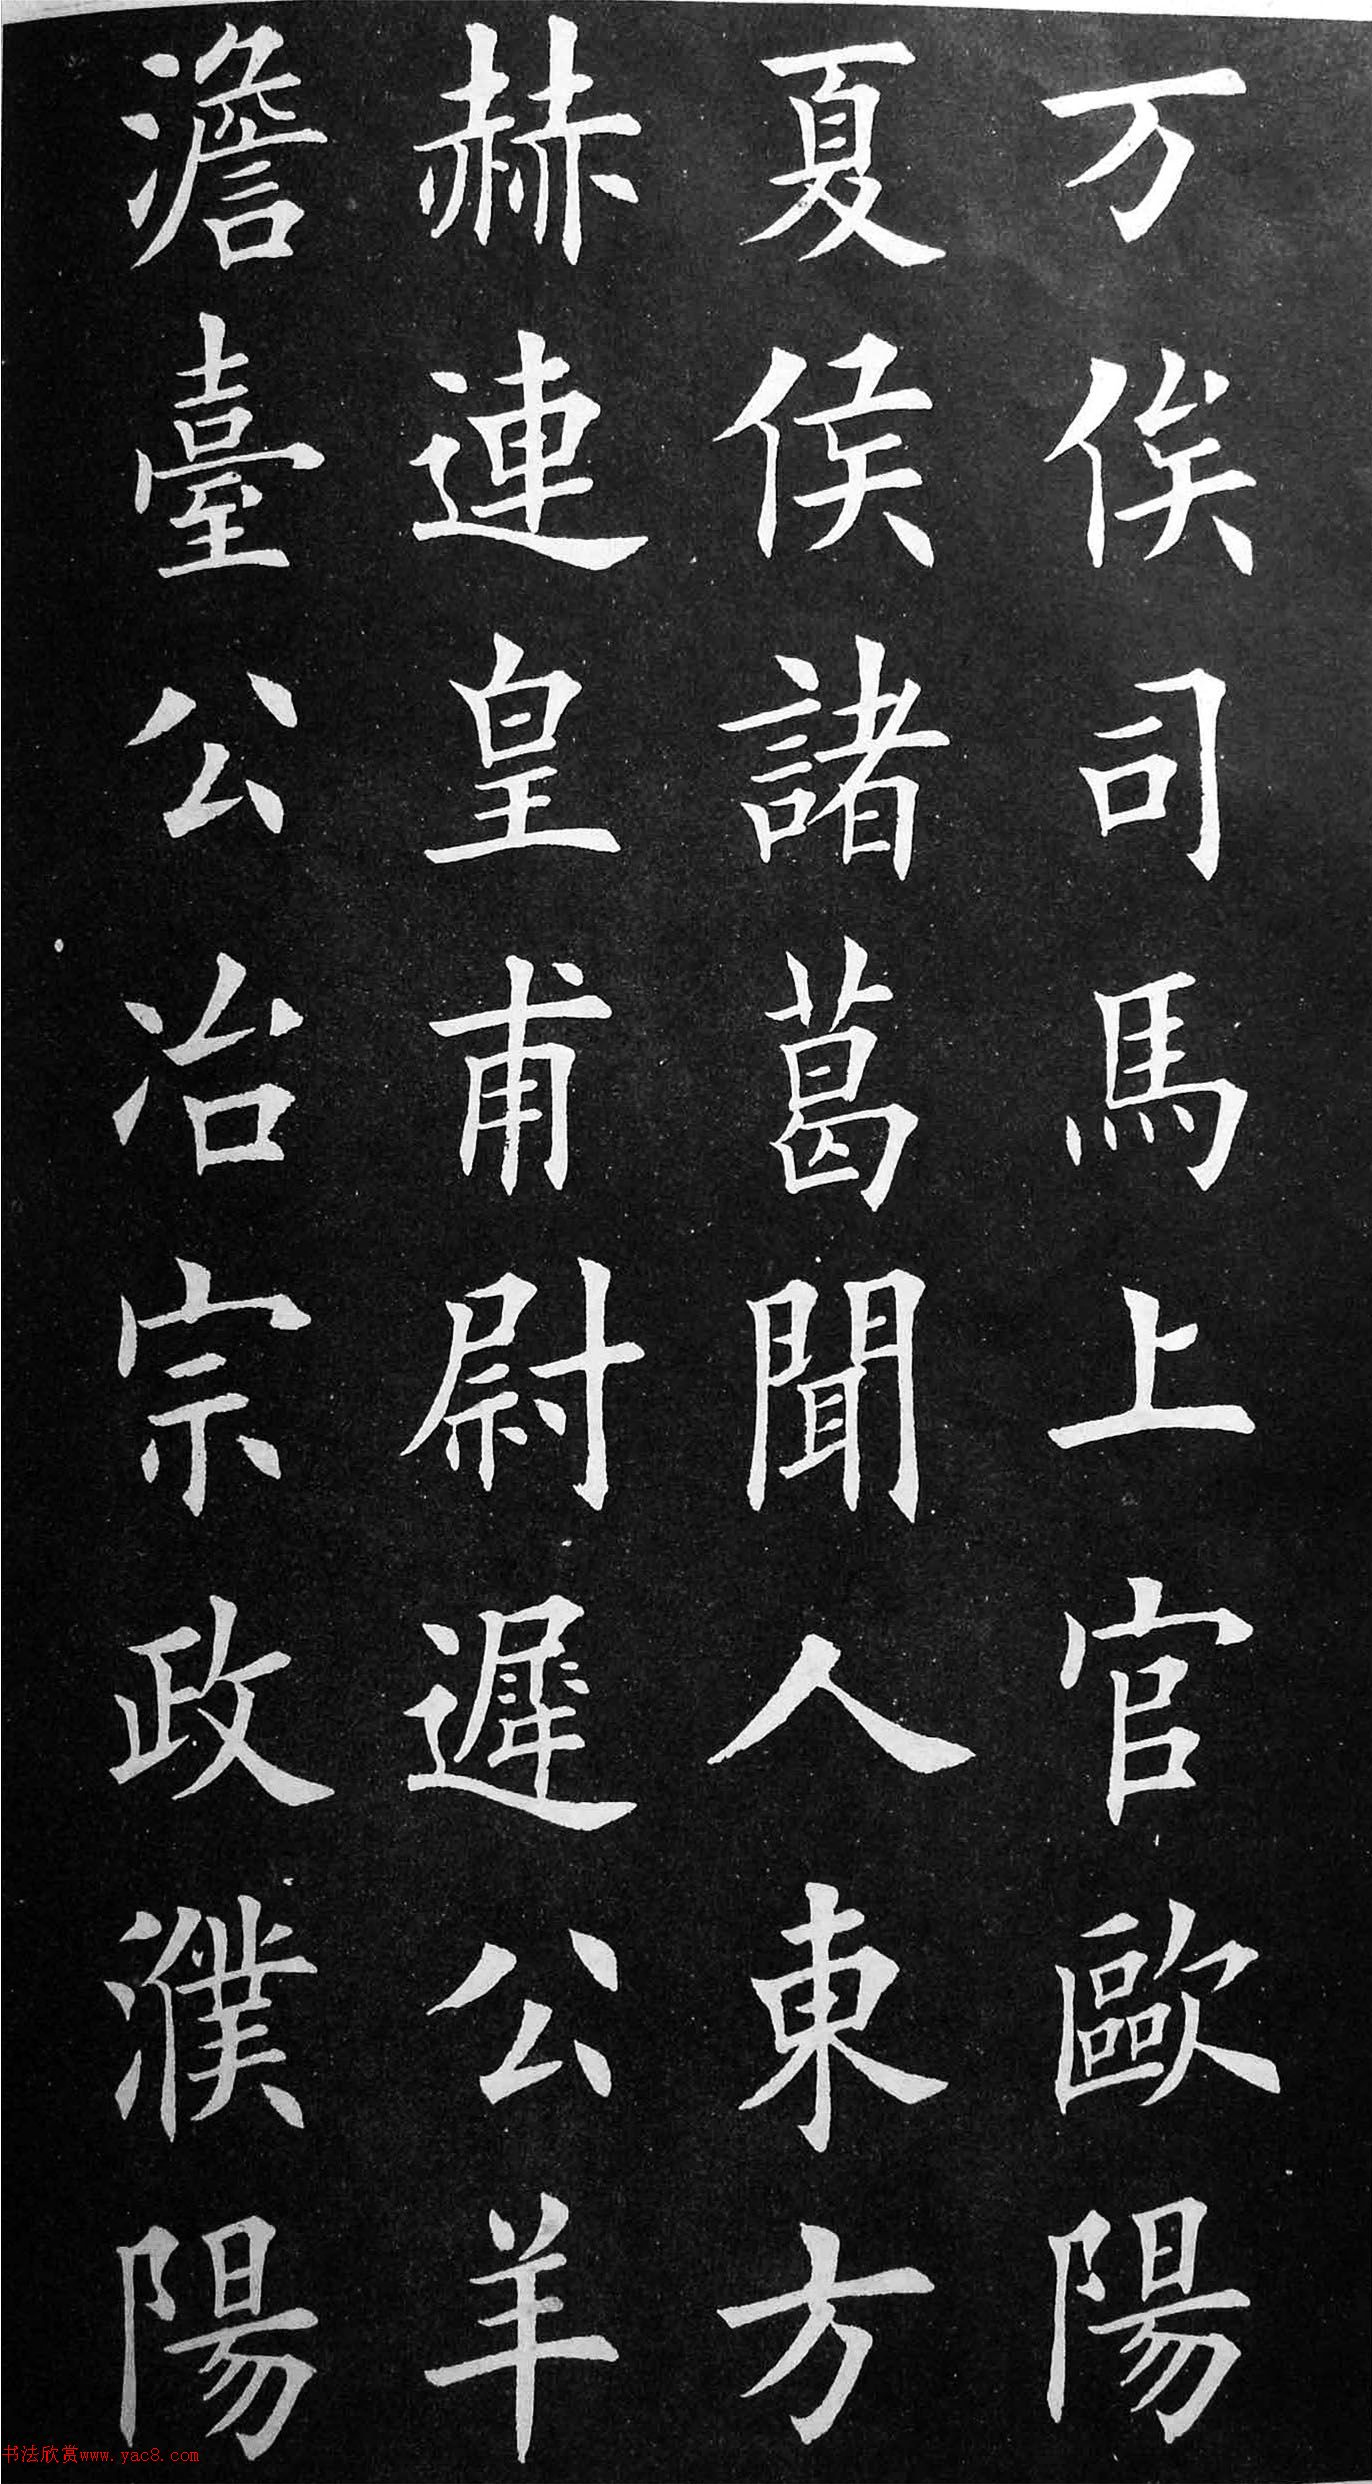 万俟司馬上官歐陽
夏侯諸葛聞人東方
赫連皇甫尉遲公羊
澹臺公冶宗政濮陽
书法欣赏www.yac8.com